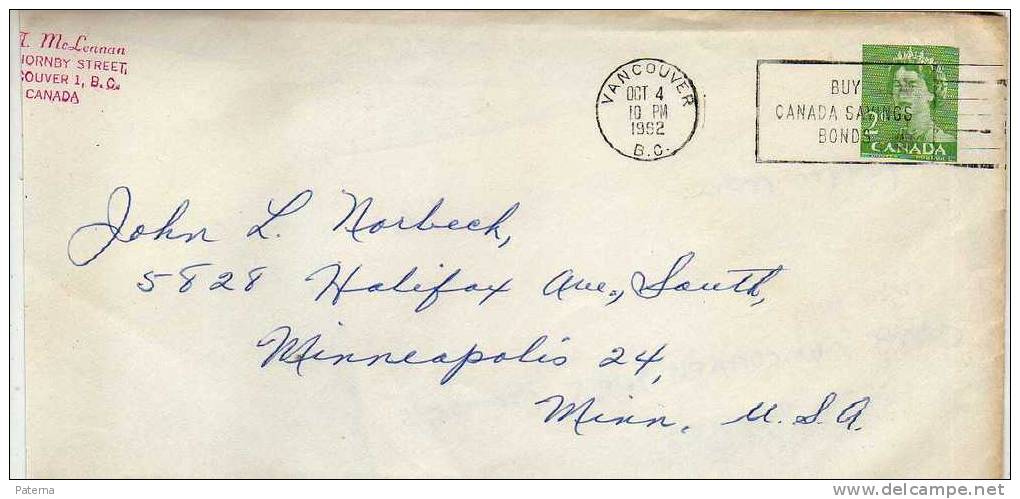 McLennan
HORNBY STREET,
COUVER 1, B.C.
CANADA
VANCOUVER
OCT 4
10 PM
1962
B.C.
BUY
CANADA SAVINGS
BONDS
2
CANADA
John L. Norbeck,
5828 Halifax Ave., South,
Minneapolis 24,
Minn, U.S.A.
Paterna
delcampe.net